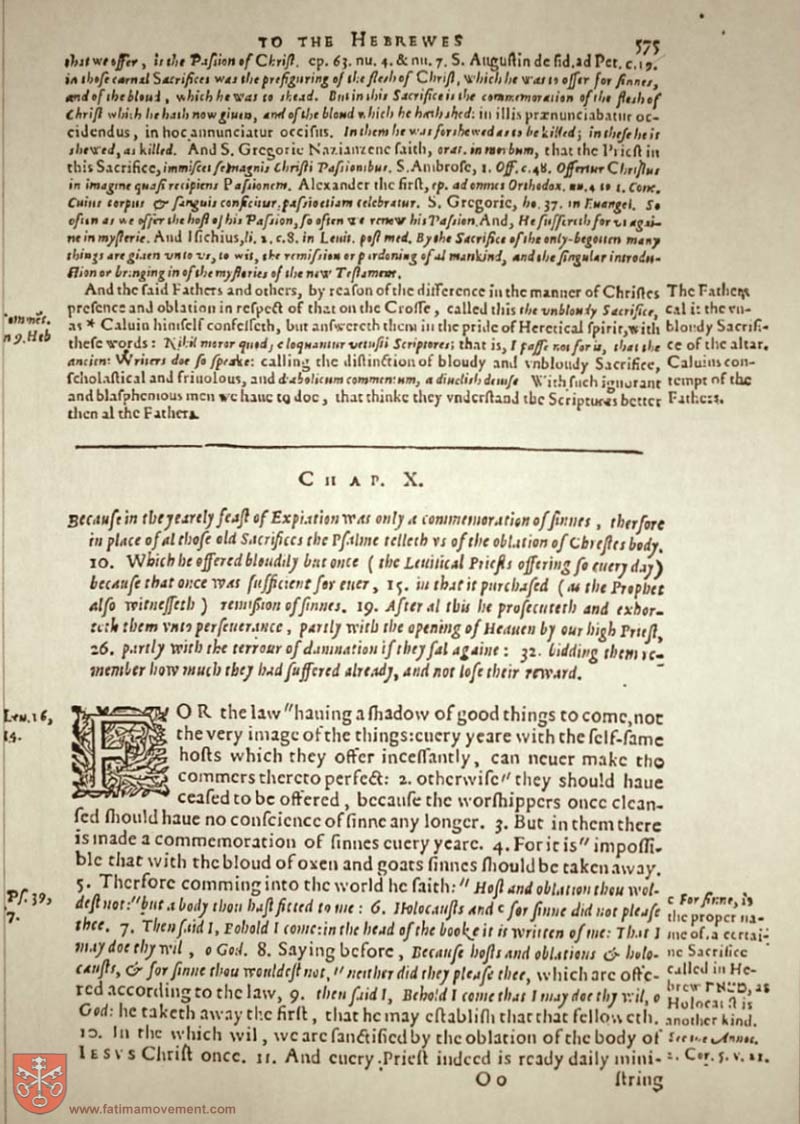 TO THE HEBREWES 575
that we offer, is the Paſſion of Chriſt. ep. 63. nu. 4. & nu. 7. S. Auguſtin de fid. ad Pet. c. 19.
in thoſe carnal Sacrifices was the prefiguring of the fleſh of Chriſt, which he was to offer for ſinnes,
and of the bloud, which he was to shead. But in this Sacrifice is the commemoration of the fleſh of
Chriſt which he hath now giuen, and of the bloud which he hath shed: in illis prænunciabatur oc-
cidendus, in hoc annunciatur occiſus. In them he was forshewed as to be killed; in theſe he is
shewed, as killed. And S. Gregorie Nazianzene ſaith, orat. in morbum, that the Prieſt in
this Sacrifice, immiſcet ſe magnis Chriſti Paſſionibus. S. Ambroſe, 1. Off. c. 48. Offertur Chriſtus
in imagine quaſi recipiens Paſſionem. Alexander the firſt, ep. ad omnes Orthodox. nu. 4 to 1. Conc.
Cuius corpus & ſanguis conficitur, paſſio etiam celebratur. S. Gregorie, ho. 37. in Euangel. So
often as we offer the hoſt of his Paſſion, ſo often we renew his Paſſion. And, He ſuffereth for vs agai-
ne in myſterie. And Iſichius, li. 2. c. 8. in Leuit. poſt med. By the Sacrifice of the only-begotten many
things are giuen vnto vs, to wit, the remiſſion or pardoning of al mankind, and the ſingular introdu-
ction or bringing in of the myſteries of the new Teſtament.
And the ſaid Fathers and others, by reaſon of the difference in the manner of Chriſtes
preſence and oblation in reſpect of that on the Croſſe, called this the vnbloudy Sacrifice,
as * Caluin himſelf confeſſeth, but anſwereth them in the pride of Heretical ſpirit, with
theſe words: Nihil moror quod ſic loquantur vetuſti Scriptores; that is, I paſſe not for it, that the
ancient Writers doe ſo ſpeake: calling the diſtinction of bloudy and vnbloudy Sacrifice,
ſcholaſtical and friuolous, and diabolicum commentum, a diuelish deuiſe With ſuch ignorant
and blaſphemous men we haue to doe, that thinke they vnderſtand the Scriptures better
then al the Fathers.
n 9. Heb
The Fathers
cal it the vn-
bloudy Sacrifi-
ce of the altar.
Caluins con-
tempt of the
Fathers.
CHAP. X.
Becauſe in the yearely feaſt of Expiation was only a commemoration of ſinnes, therfore
in place of al thoſe old Sacrifices the Pſalme telleth vs of the oblation of Chriſtes body.
10. Which he offered bloudily but once (the Leuitical Prieſts offering ſo euery day)
becauſe that once was ſufficient for euer, 15. in that it purchaſed (as the Prophet
alſo witneſſeth) remiſſion of ſinnes. 19. After al this he proſecuteth and exhor-
teth them vnto perſeuerance, partly with the opening of Heauen by our high Prieſt,
26. partly with the terrour of damnation if they fal againe: 32. bidding them re-
member how much they had ſuffered already, and not loſe their reward.
Leu. 16,
14.
FOR the law " hauing a ſhadow of good things to come, not
the very image of the things: euery yeare with the ſelf-ſame
hoſts which they offer inceſſantly, can neuer make the
commers thereto perfect: 2. otherwiſe " they should haue
ceaſed to be offered, becauſe the worſhippers once clean-
ſed ſhould haue no conſcience of ſinne any longer. 3. But in them there
is made a commemoration of ſinnes euery yeare. 4. For it is " impoſſi-
ble that with the bloud of oxen and goats ſinnes ſhould be taken away.
5. Therfore comming into the world he ſaith: " Hoſt and oblation thou wol-
deſt not: " but a body thou haſt fitted to me: 6. Holocauſts and c for ſinne did not pleaſe
thee. 7. Then ſaid I, Behold I come: in the head of the booke it is written of me: That I
may doe thy wil, o God. 8. Saying before, Becauſe hoſts and oblations & holo-
cauſts, & for ſinne thou wouldeſt not, " neither did they pleaſe thee, which are offe-
red according to the law, 9. then ſaid I, Behold I come that I may doe thy wil, o
God: he taketh away the firſt, that he may eſtabliſh that that followeth.
10. In the which wil, we are ſanctified by the oblation of the body of
IESVS Chriſt once. 11. And euery Prieſt indeed is ready daily mini-
Pſ. 39,
7.
c For ſinne, is
the proper na-
me of a certai-
ne Sacrifice
called in He-
brew חטאת, as
Holocauſt is
another kind.
See the Annot.
2. Cor. 5. v. 21.
Oo ſtring
www.fatimamovement.com